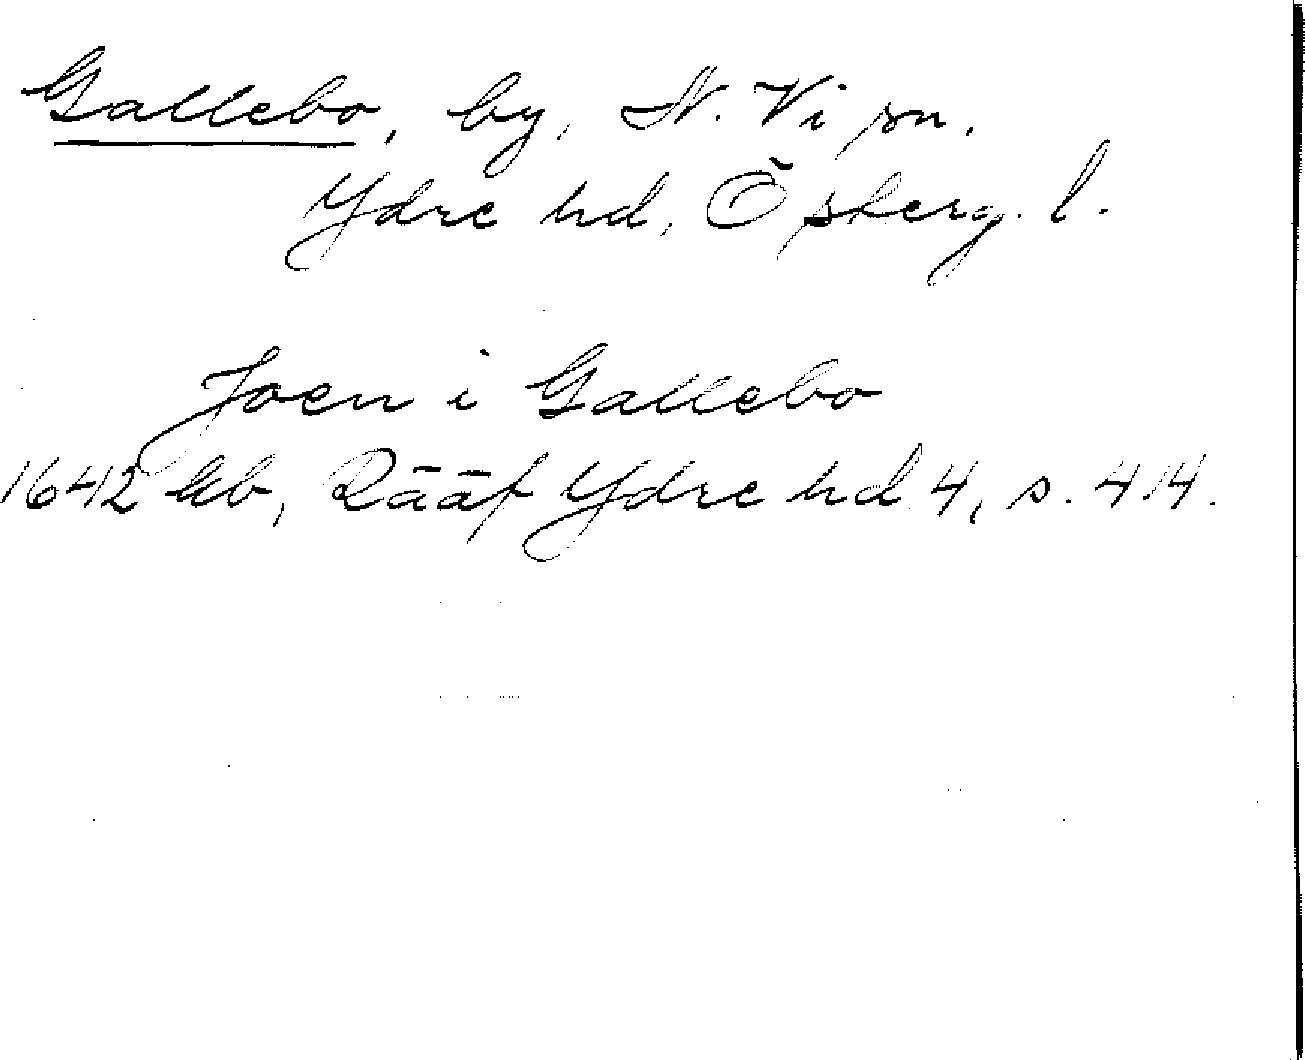 Gallebo, by, N. Vi sn.
Ydre hd, Östergl.
Joen i Gallebo
1642 Kb, Rääf Ydre hd 4, s. 414.